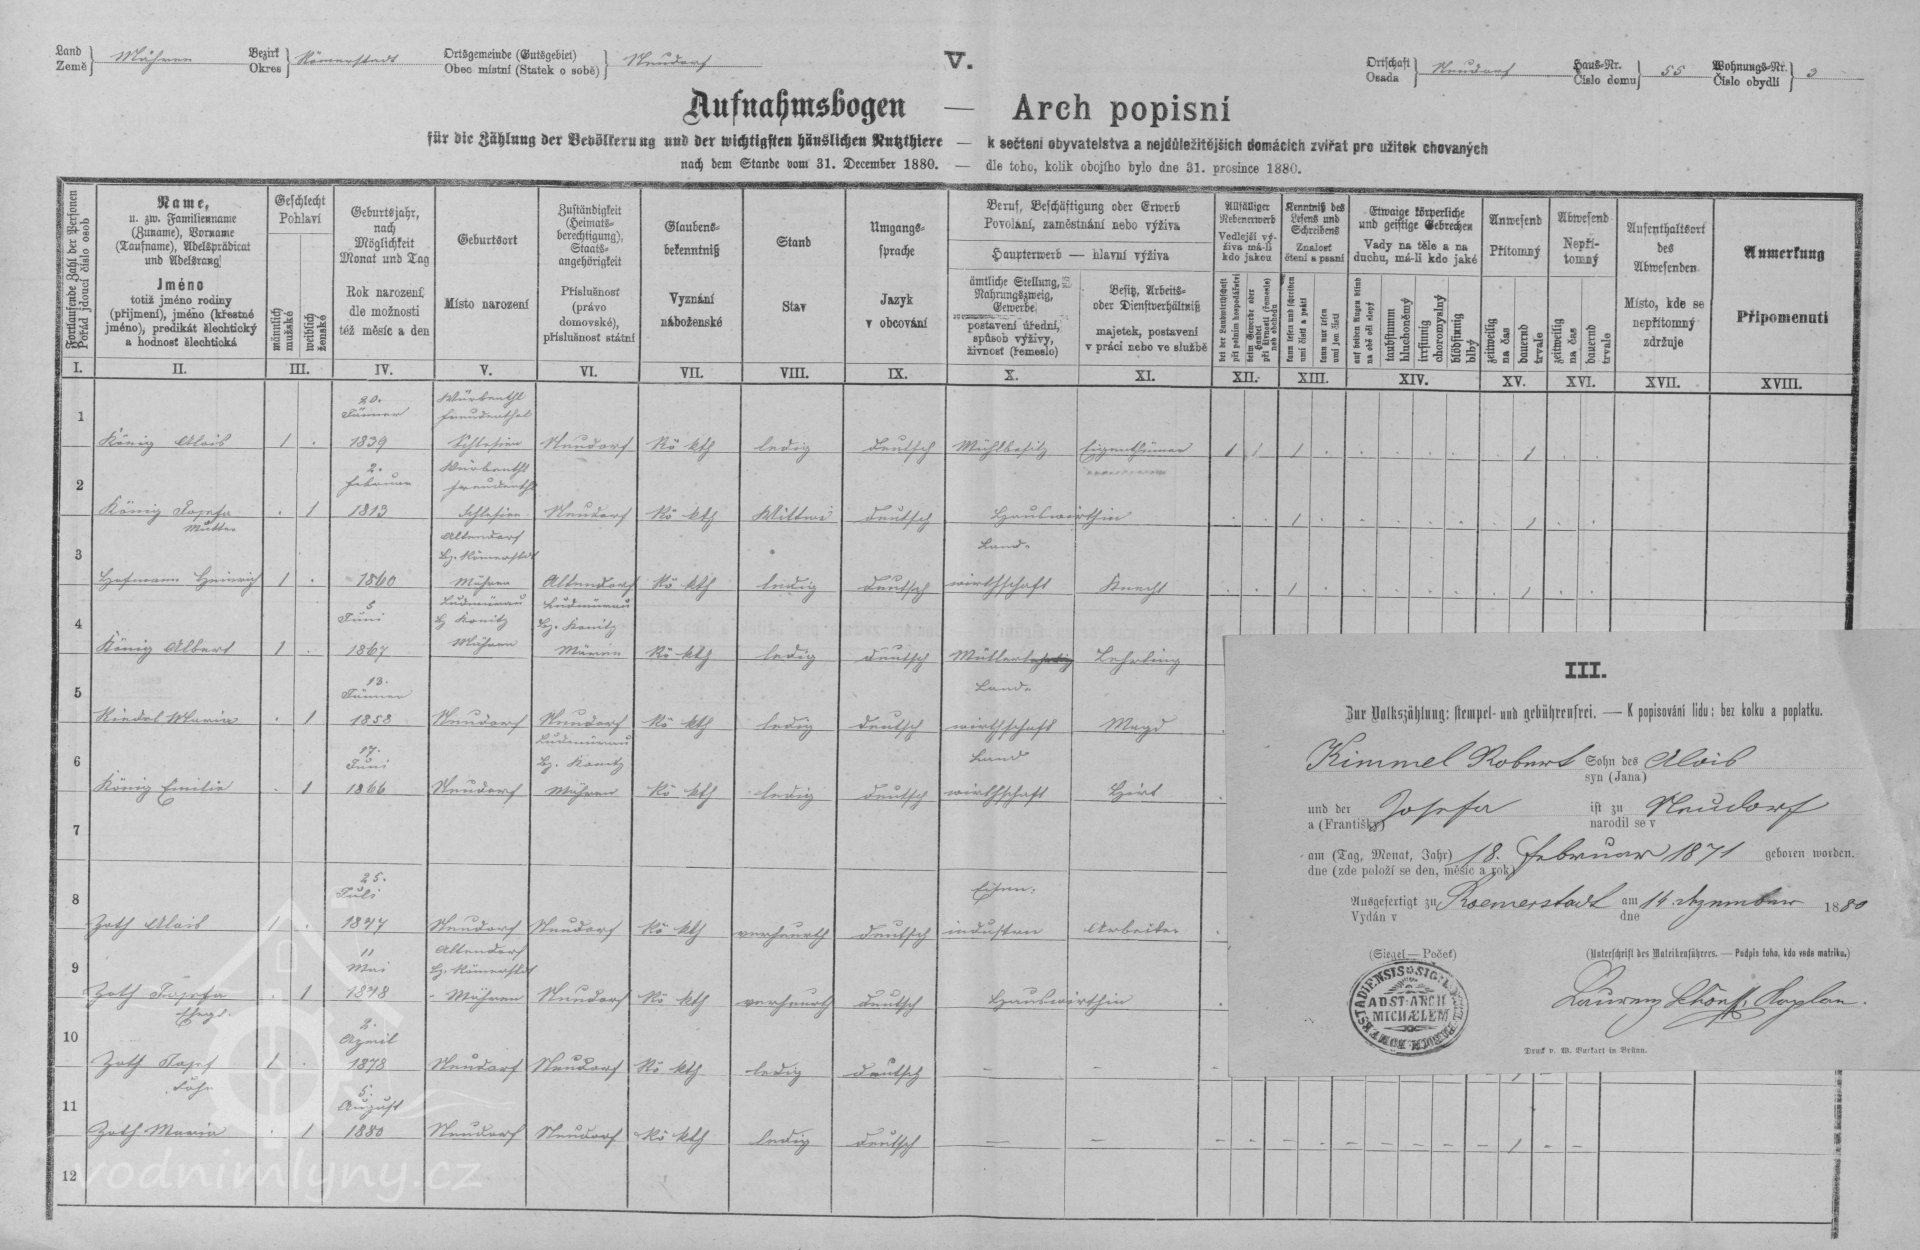 Land Mähren Bezirk Römerstadt Ortsgemeinde (Gutsgebiet) Neudorf V. Ortschaft Neudorf Haus-Nr. 55 Wohnungs-Nr. 3
Země Okres Obec místní (Statek o sobě) Osada Číslo domu Číslo obydlí
Aufnahmsbogen — Arch popisní
für die Zählung der Bevölkerung und der wichtigsten häuslichen Nutzthiere — k sečtení obyvatelstva a nejdůležitějších domácích zvířat pro užitek chovaných
nach dem Stande vom 31. December 1880. — dle toho, kolik obojího bylo dne 31. prosince 1880.
Fortlaufende Zahl der Personen
Pořád jdoucí číslo osob
Name,
u. zw. Familienname
(Zuname), Vorname
(Taufname), Adelsprädicat
und Adelsrang
Jméno
totiž jméno rodiny
(příjmení), jméno (křestné
jméno), predikát šlechtický
a hodnost šlechtická
Geschlecht
Pohlaví
männlich
mužské
weiblich
ženské
Geburtsjahr,
nach
Möglichkeit
Monat und Tag
Rok narození,
dle možnosti
též měsíc a den
Geburtsort
Místo narození
Zuständigkeit
(Heimats-
berechtigung),
Staats-
angehörigkeit
Příslušnost
(právo
domovské),
příslušnost státní
Glaubens-
bekenntniß
Vyznání
náboženské
Stand
Stav
Umgangs-
sprache
Jazyk
v obcování
Beruf, Beschäftigung oder Erwerb
Povolání, zaměstnání nebo výživa
Haupterwerb — hlavní výživa
ämtliche Stellung,
Nahrungszweig,
Gewerbe
postavení úřední,
spůsob výživy,
živnost (řemeslo)
Besitz, Arbeits-
oder Dienstverhältniß
majetek, postavení
v práci nebo ve službě
Allfälliger
Nebenerwerb
Vedlejší vý-
živa má-li
kdo jakou
bei der Landwirthschaft
při polním hospodářství
beim Gewerbe oder
Handel
při živnosti (řemesle)
neb obchodu
Kenntniß des
Lesens und
Schreibens
Znalost
čtení a psaní
kann lesen und schreiben
umí čísti a psáti
kann nur lesen
umí jen čísti
Etwaige körperliche
und geistige Gebrechen
Vady na těle a na
duchu, má-li kdo jaké
auf beiden Augen blind
na obě oči slepý
taubstumm
hluchoněmý
irrsinnig
choromyslný
blödsinnig
blbý
Anwesend
Přítomný
zeitweilig
na čas
dauernd
trvale
Abwesend
Nepří-
tomný
zeitweilig
na čas
dauernd
trvale
Aufenthaltsort
des
Abwesenden
Místo, kde se
nepřítomný
zdržuje
Anmerkung
Připomenutí
I. II. III. IV. V. VI. VII. VIII. IX. X. XI. XII. XIII. XIV. XV. XVI. XVII. XVIII.
20. Würbenthl
1 Jänner Freudenthal
König Alois 1 . 1839 Schlesien Neudorf Rö kth ledig deutsch Mühlbesitz Eigenthümer 1 1 1 . . . . . . 1 . .
2. Würbenthl
2 Februar Freudenthl
König Josefa . 1 1813 Schlesien Neudorf Rö kth Wittwe deutsch Hauswirthin . . 1 . . . . . . 1 . .
Mutter
Altendorf
3 Bz. Römerstdt Land-
Hofmann Heinrich 1 . 1860 Mähren Altendorf Rö kth ledig deutsch wirthschaft Knecht . . 1 . . . . . . 1 . .
5 Ludmirau Ludmirau
4 Juni Bz Konitz Bz. Konitz
König Albert 1 . 1867 Mähren Mären Rö kth ledig deutsch Müller Lehrling
13.
5 Jänner Land-
Riedel Maria . 1 1858 Neudorf Neudorf Rö kth ledig deutsch wirthschaft Magd .
17. Ludmirau
6 Juni Bz. Konitz Land
König Emilie . 1 1866 Neudorf Mähren Rö kth ledig deutsch wirthschaft Hirt .
7
25.
8 Juli Eisen-
Zoth Alois 1 . 1847 Neudorf Neudorf Rö kth verheurth deutsch industrie Arbeiter .
11 Altendorf
9 Mai Bz. Römerstdt
Zoth Josefa . 1 1848 Mähren Neudorf Rö kth verheurth deutsch Hauswirthin .
2.
10 April
Zoth Josef 1 . 1878 Neudorf Neudorf Rö kth ledig deutsch – –
Sohn
5.
11 August
Zoth Maria . 1 1880 Neudorf Neudorf Rö kth ledig deutsch – – – – – – – – – – – 1 – –
12
III.
Zur Volkszählung: stempel- und gebührenfrei. — K popisování lidu: bez kolku a poplatku.
Kimmel Robert Sohn des Alois
syn (Jana)
und der Josefa ist zu Neudorf
a (Františky) narodil se v
am (Tag, Monat, Jahr) 18. Februar 1871 geboren worden.
dne (zde položí se den, měsíc a rok)
Ausgefertigt zu Roemerstadt am 14. Dezember 1880
Vydán v dne
(Siegel — Pečeť) (Unterschrift des Matrikenführers. — Podpis toho, kdo vede matriku.)
AD ST. ARCH
MICHÆLEM
Kaplan.
Druck v. W. Burkart in Brünn.
vodnimlyny.cz